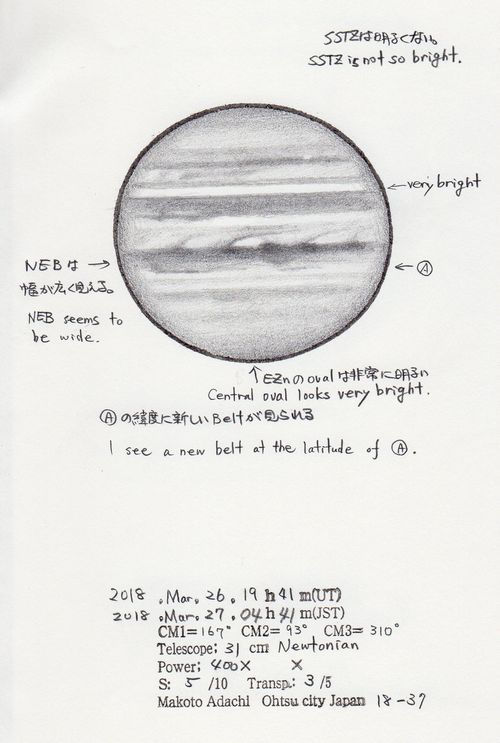 SSTZは明るくない。
SSTZ is not so bright.
← very bright
NEBは →
幅が広く見える。
NEB seems to
be wide.
← Ⓐ
↑ EZnのovalは非常に明るい
Central oval looks very bright.
Ⓐの緯度に新しいBeltが見られる
I see a new belt at the latitude of Ⓐ.
2018 .Mar. 26. 19 h 41 m(UT)
2018 .Mar. 27. 04 h 41 m(JST)
CM1=167° CM2= 93° CM3= 310°
Telescope; 31 cm Newtonian
Power; 400X X
S: 5 /10 Transp.: 3 /5
Makoto Adachi Ohtsu city Japan 18-37